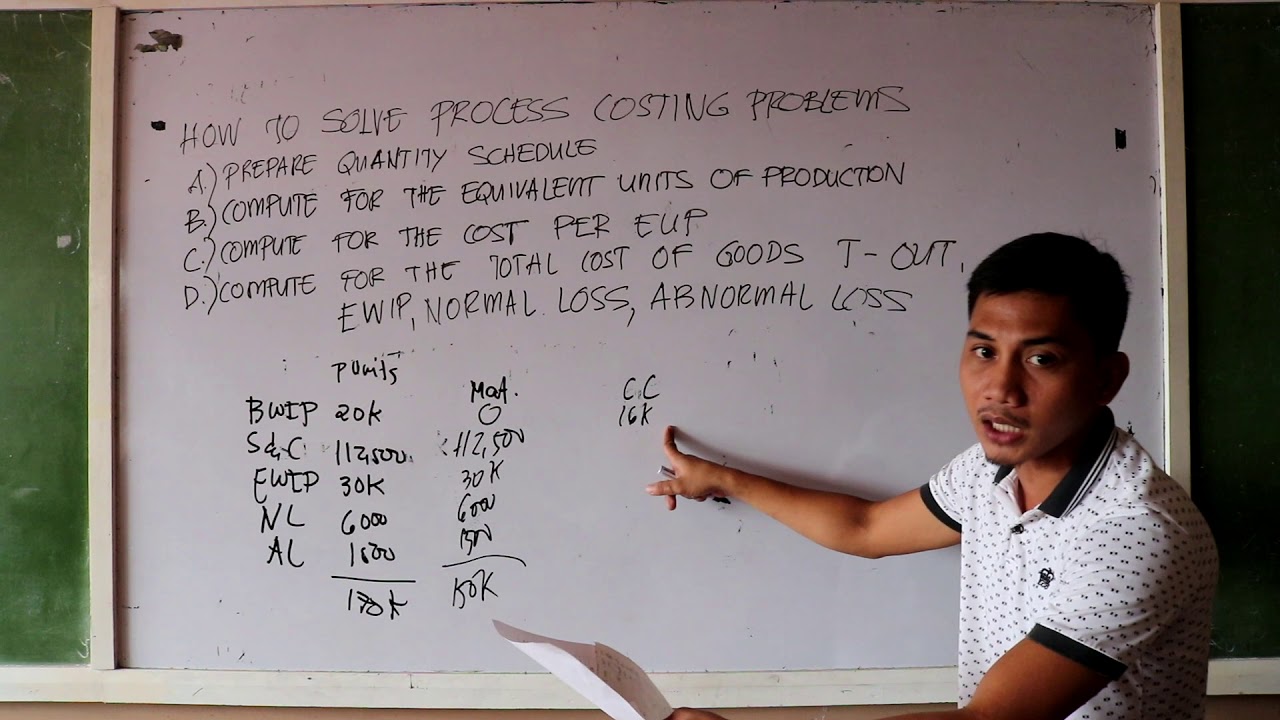 HOW TO SOLVE PROCESS COSTING PROBLEMS
A.) PREPARE QUANTITY SCHEDULE
B.) COMPUTE FOR THE EQUIVALENT UNITS OF PRODUCTION
C.) COMPUTE FOR THE COST PER EUP
D.) COMPUTE FOR THE TOTAL COST OF GOODS T-OUT,
EWIP, NORMAL LOSS, ABNORMAL LOSS
punits Mat. C.C
BWIP 20K 0 16K
S&C 112,500 112,500
EWIP 30K 30K
NL 6000 6000
AL 1500 1500
170K 150K